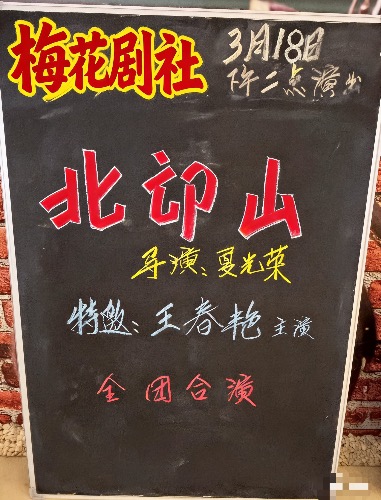 梅花剧社
3月18日
下午二点演出
北邙山
导演：夏光荣
特邀：王春艳 主演
全团合演